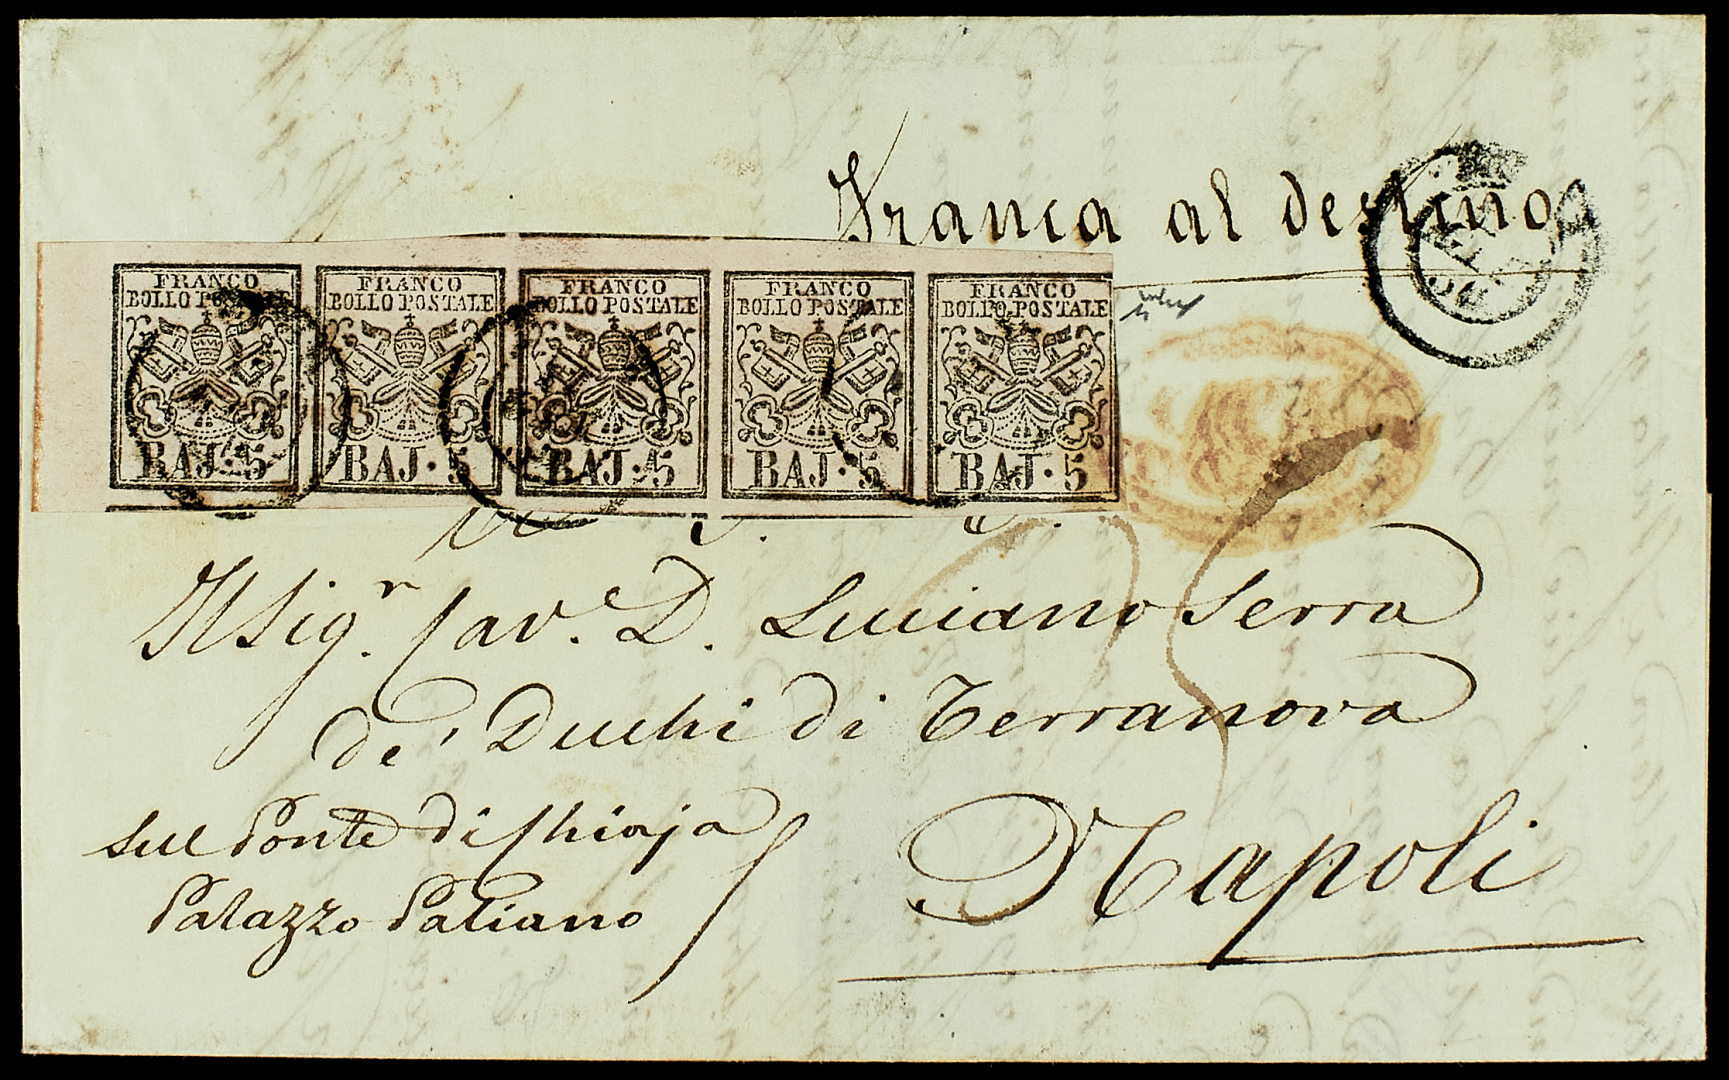 Franca al destino
FRANCO
BOLLO POSTALE
BAJ. 5
FRANCO
BOLLO POSTALE
BAJ. 5
FRANCO
BOLLO POSTALE
BAJ. 5
FRANCO
BOLLO POSTALE
BAJ. 5
FRANCO
BOLLO POSTALE
BAJ. 5
Il Sig.r Cav.e D. Luciano Serra
de' Duchi di Terranova
Sul Ponte di Chiaja
Palazzo Paliano
Napoli